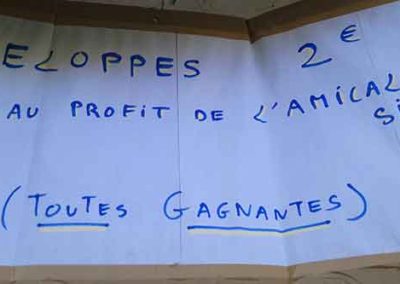 ELOPPES 2€
AU PROFIT DE L'AMICAL
Si
(TOUTES GAGNANTES)